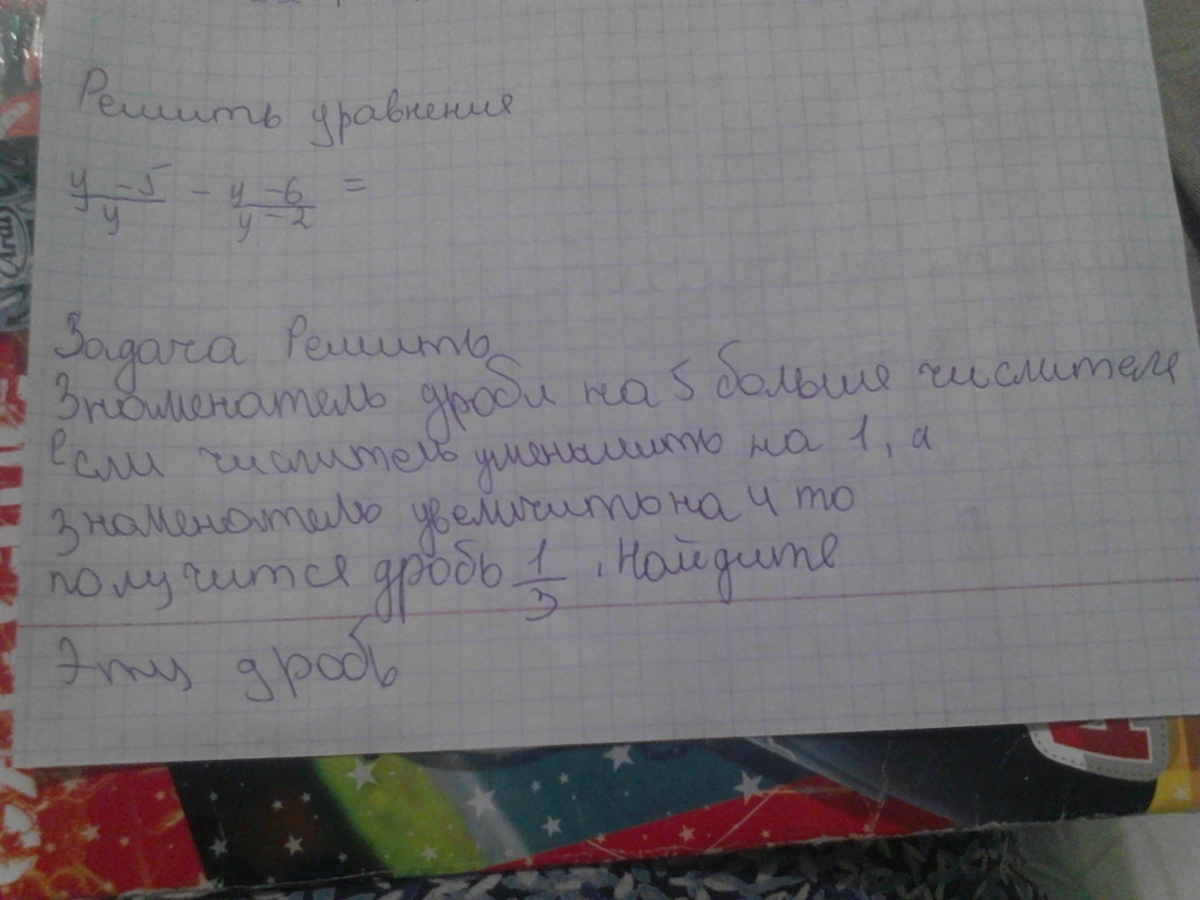 Решить уравнения
y-5/y - y-6/y-2 =
Задача Решить
Знаменатель дроби на 5 больше числителя
Если числитель уменьшить на 1, а
знаменатель увеличить на 4 то
получится дробь 1/3. Найдите
Эту дробь